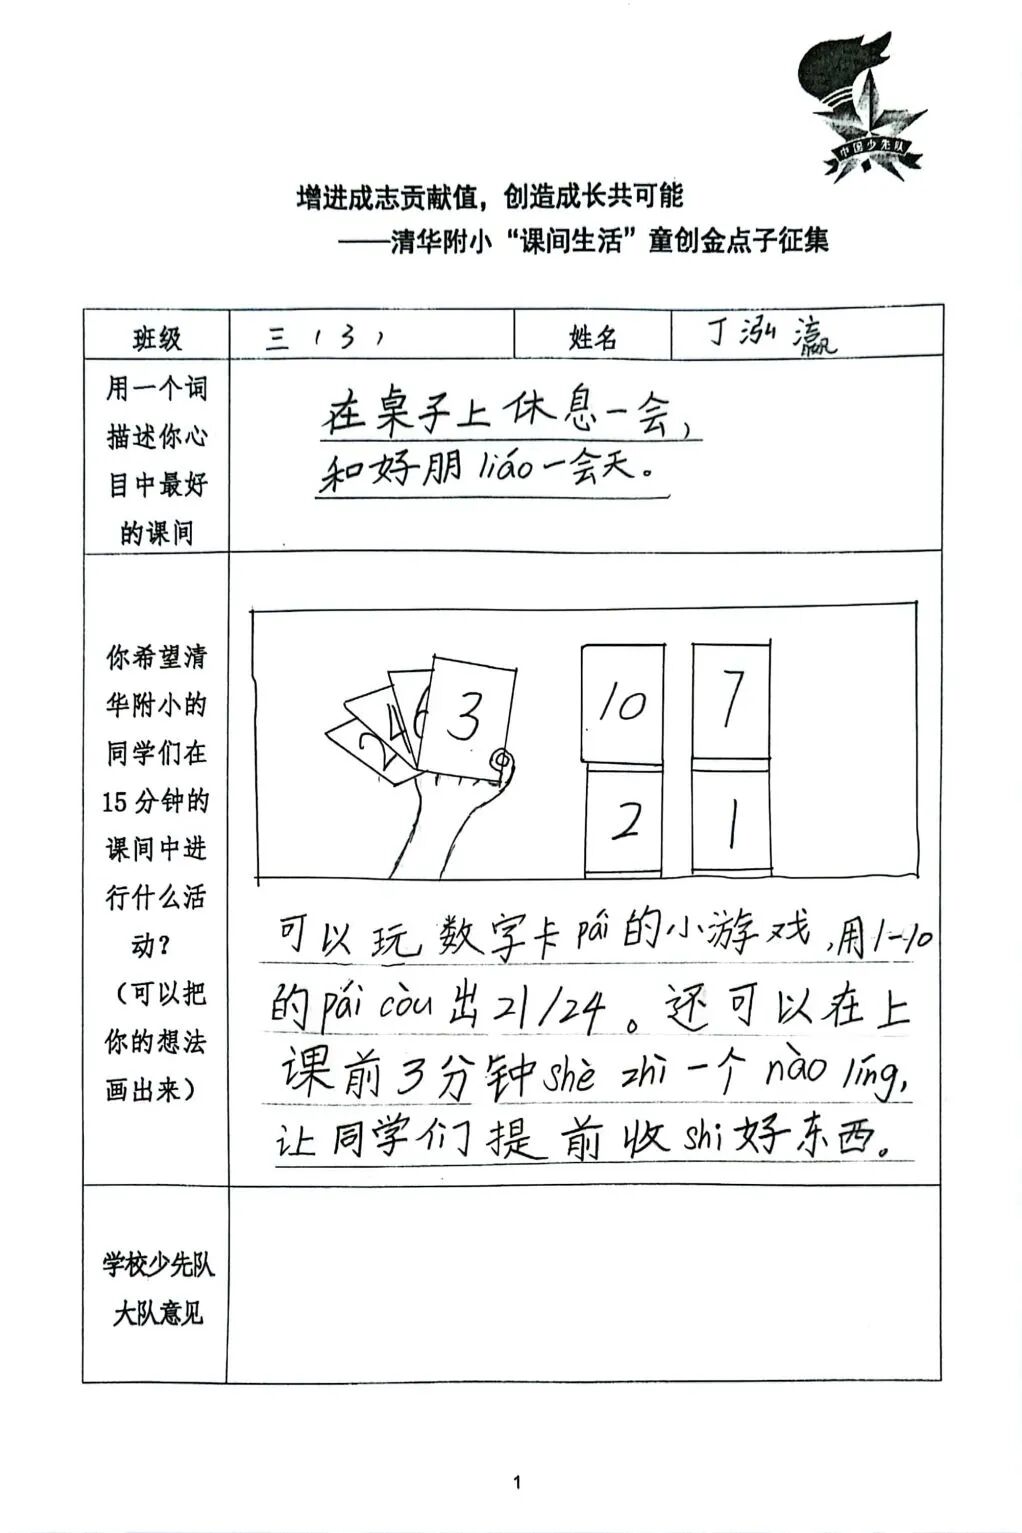 中国少先队
增进成志贡献值，创造成长共可能
——清华附小“课间生活”童创金点子征集
班级
三（3）
姓名
丁泓瀛
用一个词
描述你心
目中最好
的课间
在桌子上休息一会，
和好朋liáo一会天。
你希望清
华附小的
同学们在
15分钟的
课间中进
行什么活
动？
（可以把
你的想法
画出来）
2 4 6 3
10 7
2 1
可以玩数字卡pái的小游戏，用1-10
的pái còu出21/24。还可以在上
课前3分钟shè zhì一个nào líng，
让同学们提前收shi好东西。
学校少先队
大队意见
1